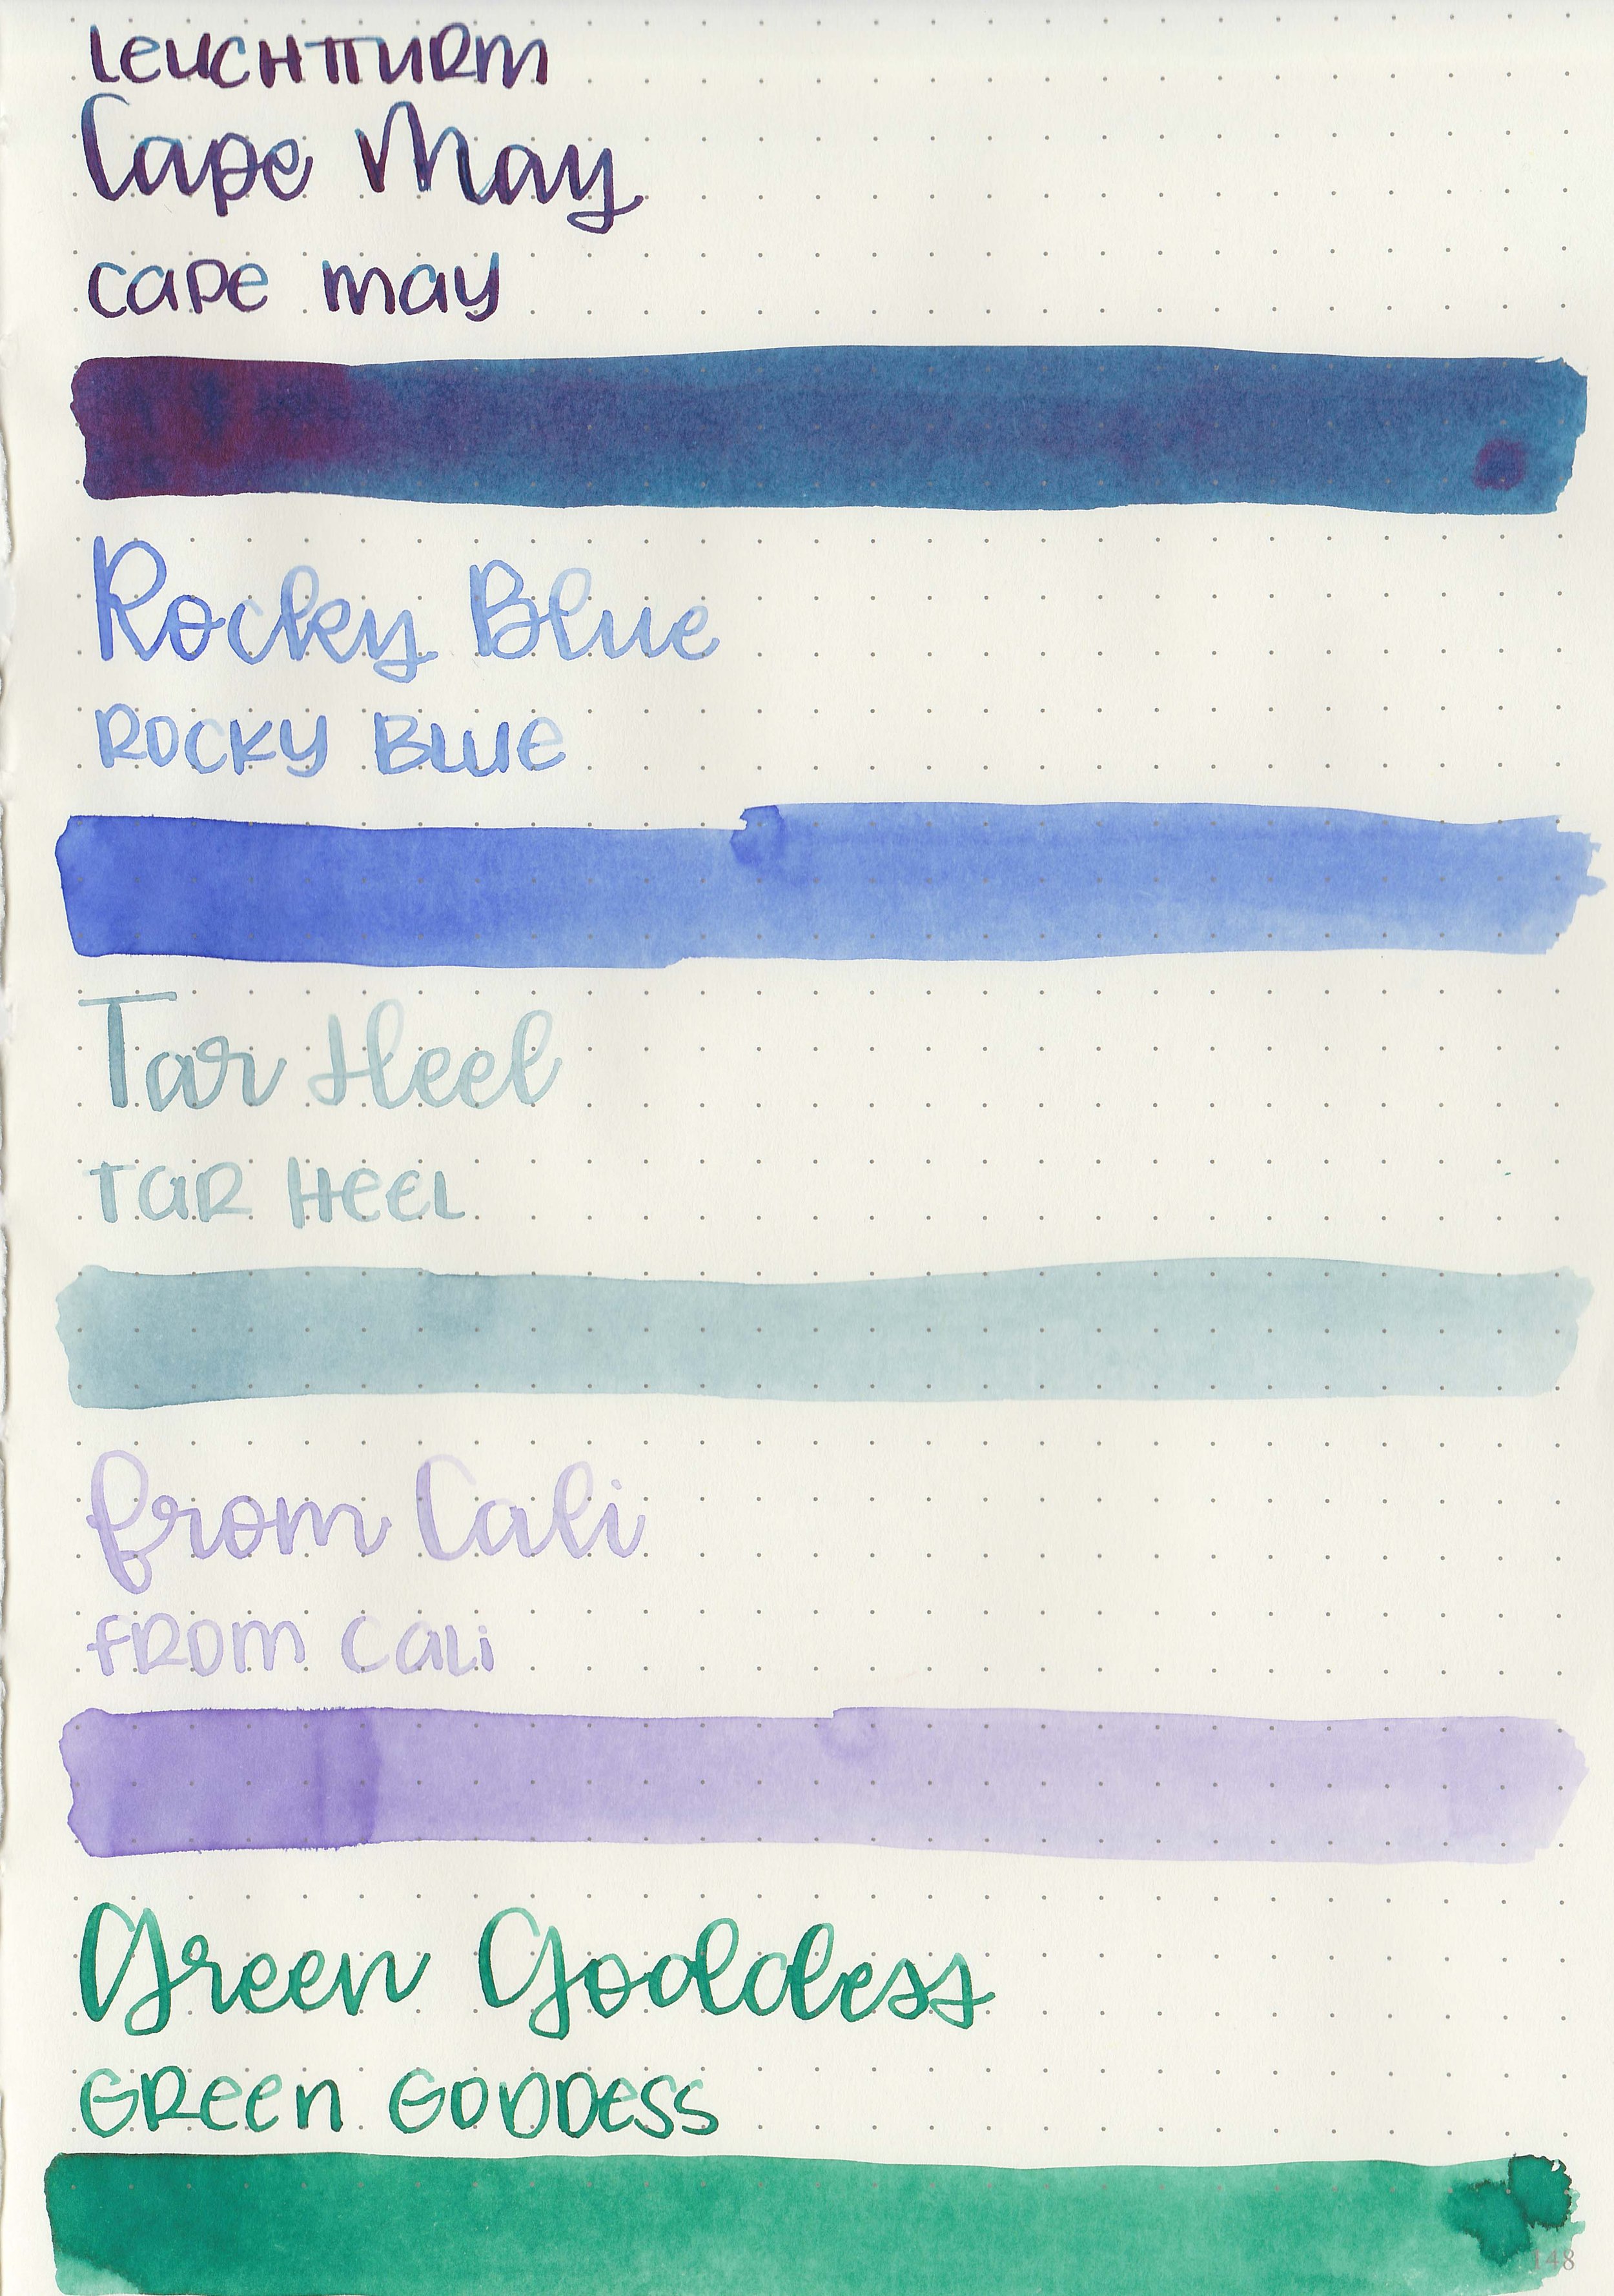 LEUCHTTURM
Cape May
cape may
Rocky Blue
ROCKY BLUE
Tar Heel
TAR HEEL
from Cali
FROM CALI
Green Goddess
GREEN GODDESS
148